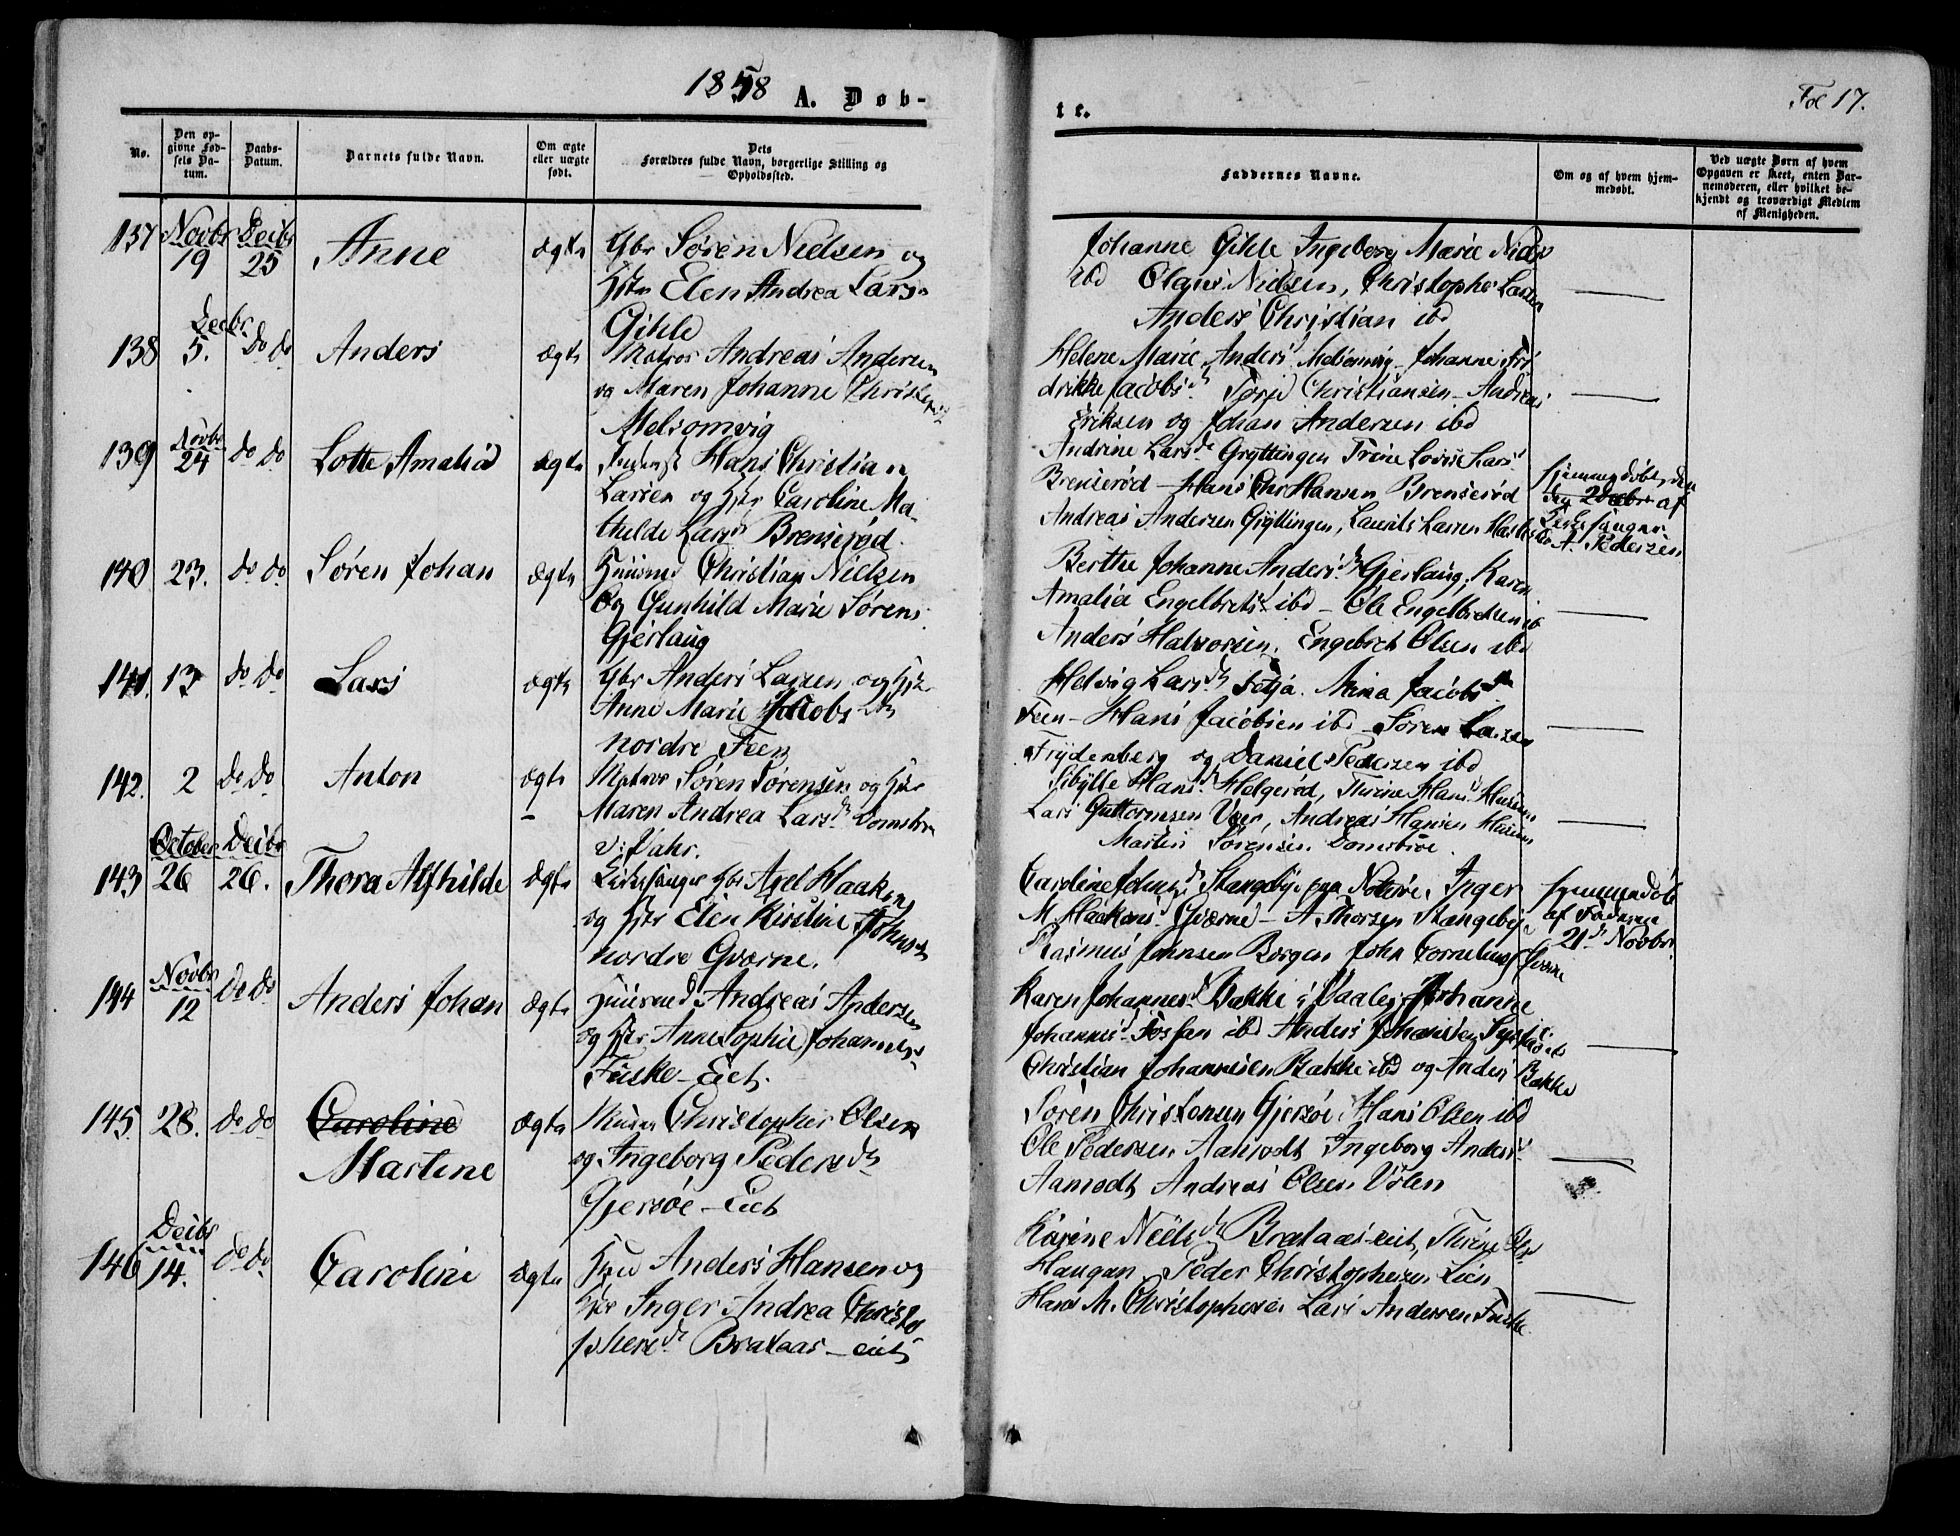 1858 A. Døb-
te. Fol 17.
No.
Den op-
givne Fød-
sels Da-
tum.
Daabs-
Datum.
Barnets fulde Navn.
Om ægte
eller uægte
født.
Dets
Forældres fulde Navn, borgerlige Stilling og
Opholdssted.
Faddernes Navne.
Om og af hvem hjem-
medøbt.
Ved uægte Børn af hvem
Opgaven er skeet, enten Bar-
nemoderen, eller hvilket be-
kjendt og troværdigt Medlem
af Menigheden.
137 Novbr 19 Decbr 25 Anne ægte Gbr Søren Nielsen og
Hstr Elen Andrea Lars
Gihle
Johanne Gihle Ingeborg Marie Niels
ibd Olaus Nielsen, Christopher Larsen
Anders Christian ibd
138 Decbr 5. do do Anders ægte Matros Andreas Andersen
og Maren Johanne Christens
Melsomvig
Helene Marie Anders Melsomvig Johanne Fre
drikke Jacobsd Christiansen Andreas
Eriksen og Johan Andersen ibd
139 Novbr 24 do do Lotte Amalia ægte Hans Christian
Larsen og Hstr Caroline Ma
thilde Lars Brenserød.
Andrine Larsd Gryttingen Trine Lovise Lars
Brenserød Hans Chr Hansen Brenserød
Andreas Andersen Gryttingen, Laurits Larsen
Hjemmedøbt den
af
Kirkesanger
A. Pedersen
140 23. do do Søren Johan ægte Huusmd Christian Nielsen
og Gunhild Marie Sørens
Gjerlaug
Berthe Johanne Andersd Gjerlaug, Karen
Amalia Engelbrets ibd Ole Engelbretsen ib
Anders Halvorsen. Engebret Olsen ibd
141. 13 do do Lars ægte Gbr Anders Larsen og Hstr
Anne Marie Jacobs
nordre Feen
Helvig Larsd Mina Jacobs
Feen Hans Jacobsen ibd Søren Larsen
Frydenberg og Daniel Pedersen ibd
142. 2 do do Anton ægte Matros Søren Sørensen og Hstr
Maren Andrea Larsd
Sibylle Hansd Helgerød, Thrine Hans
Lars Guttormsen Veer, Andreas Hansen
Martin Sørensen
143 October 26 Decbr 26. Thora Alfhilde ægte Kirkesanger Gbr Axel Haaken
og Hstr Elen Kirstine Johns
nordre Gværne.
Caroline Johnsd Stangeby Inger
M. Haakens Gværne A. Thorsen Stangeby
Rasmus Johnsen Borgen John Cornelius Gværne
hjemmedøbt
af Faderen
21de Novbr
144 Novbr 12 do do Anders Johan ægte Huusmd Andreas Andersen
og Hstr Anne Sophie Johannes
Fuske Eiet.
Karen Johannesd Bakke i Vaale Johanne
Johannes ibd Anders Johansen
Christian Johannesen Bakke ibd og Anders Bakke
145. 28. do do Caroline
Martine ægte Christopher Olsen
og Ingeborg Pedersd
Gjersøe Eiet
Søren Christensen Gjersøe Hans Olsen ibd
Ole Pedersen Aamodt Ingeborg Anders
Aamodt Andreas Olsen Volen
146 Decbr 14. do do Caroline ægte Anders Hansen og
Hstr Inger Andrea Christo
phersd Brataas eiet
Karine Nielsd Brataas eiet, Thrine
Haugan Peder Christophersen Lien
Hans M. Christophersen Lars Andersen Fuske